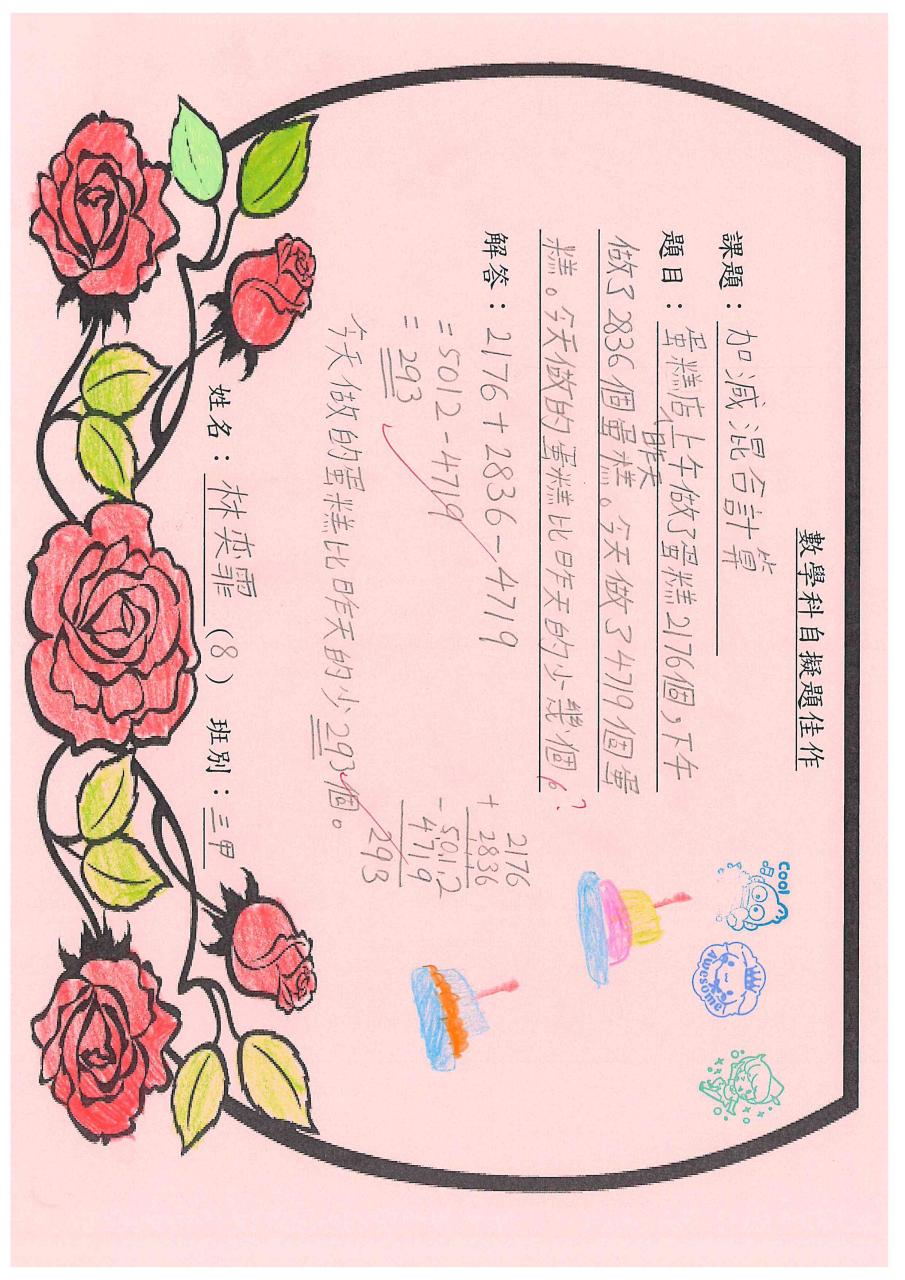 數學科自擬題佳作
課題：加減混合計算
題目：蛋糕店上午做了蛋糕2176個，下午
昨天
做了2836個蛋糕。今天做了4719個蛋
糕。今天做的蛋糕比昨天的少幾個？
解答：2176+2836-4719
=5012-4719
=293
今天做的蛋糕比昨天的少293個。
2176
+ 2836
5012
- 4719
293
COOL
Awesome
姓名：林奕霏（8） 班別：三甲